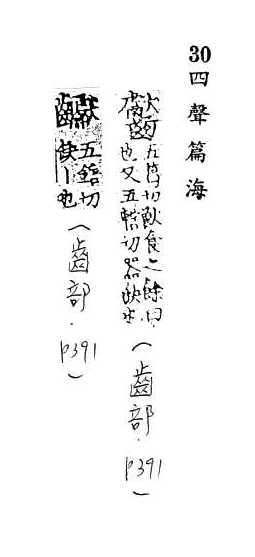 30 四聲篇海
五舘切獸食之餘曰
也又五轄切器缺也(齒部.p391)
五鎋切
缺|也(齒部.p391)